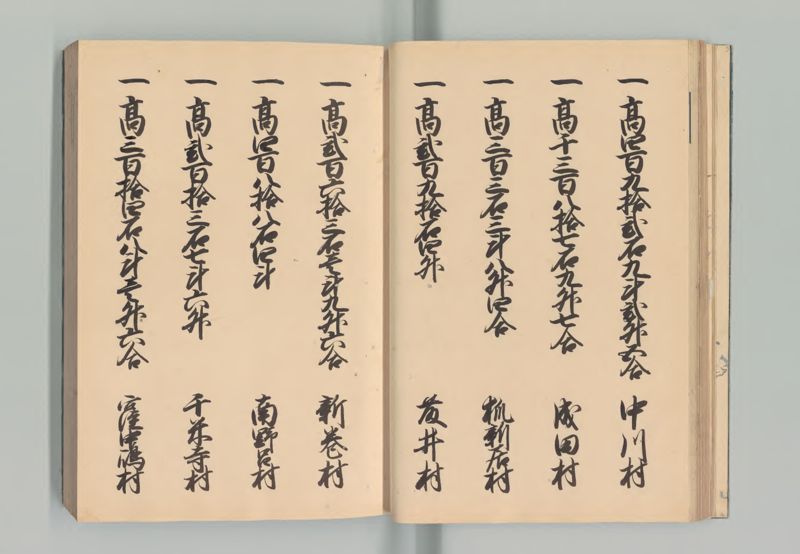 一高四百九拾弐石九斗弐升五合 中川村
一高千三百八拾七石九升七合 成田村
一高三百三石三斗八升四合 桃新居村
一高弐百九拾石四升 藤井村
一高弐百六拾三石壱斗九升六合 新巻村
一高四百八拾八石四斗 南野呂村
一高弐百拾三石七斗六升 千米寺村
一高三百拾四石八斗壱升六合 窪中嶋村